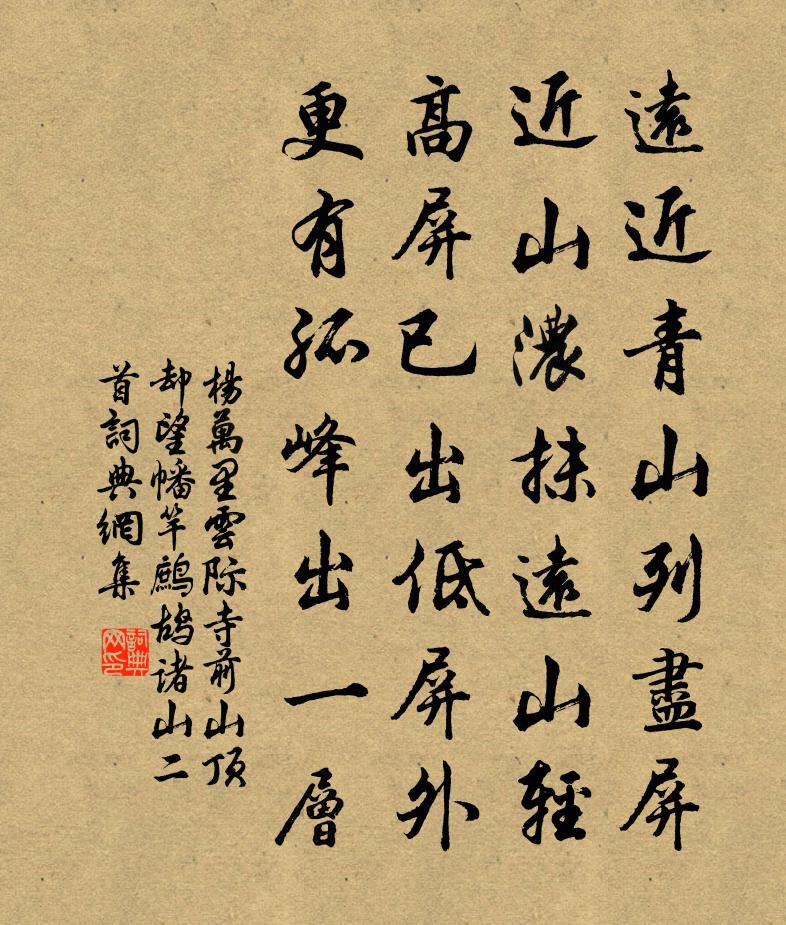 遠近青山列盡屏
近山濃抹遠山輕
高屏已出低屏外
更有孤峰出一層
楊萬里雲际寺前山顶
却望幡竿鷓鴣诸山二
首詞典網集
詞典
网印